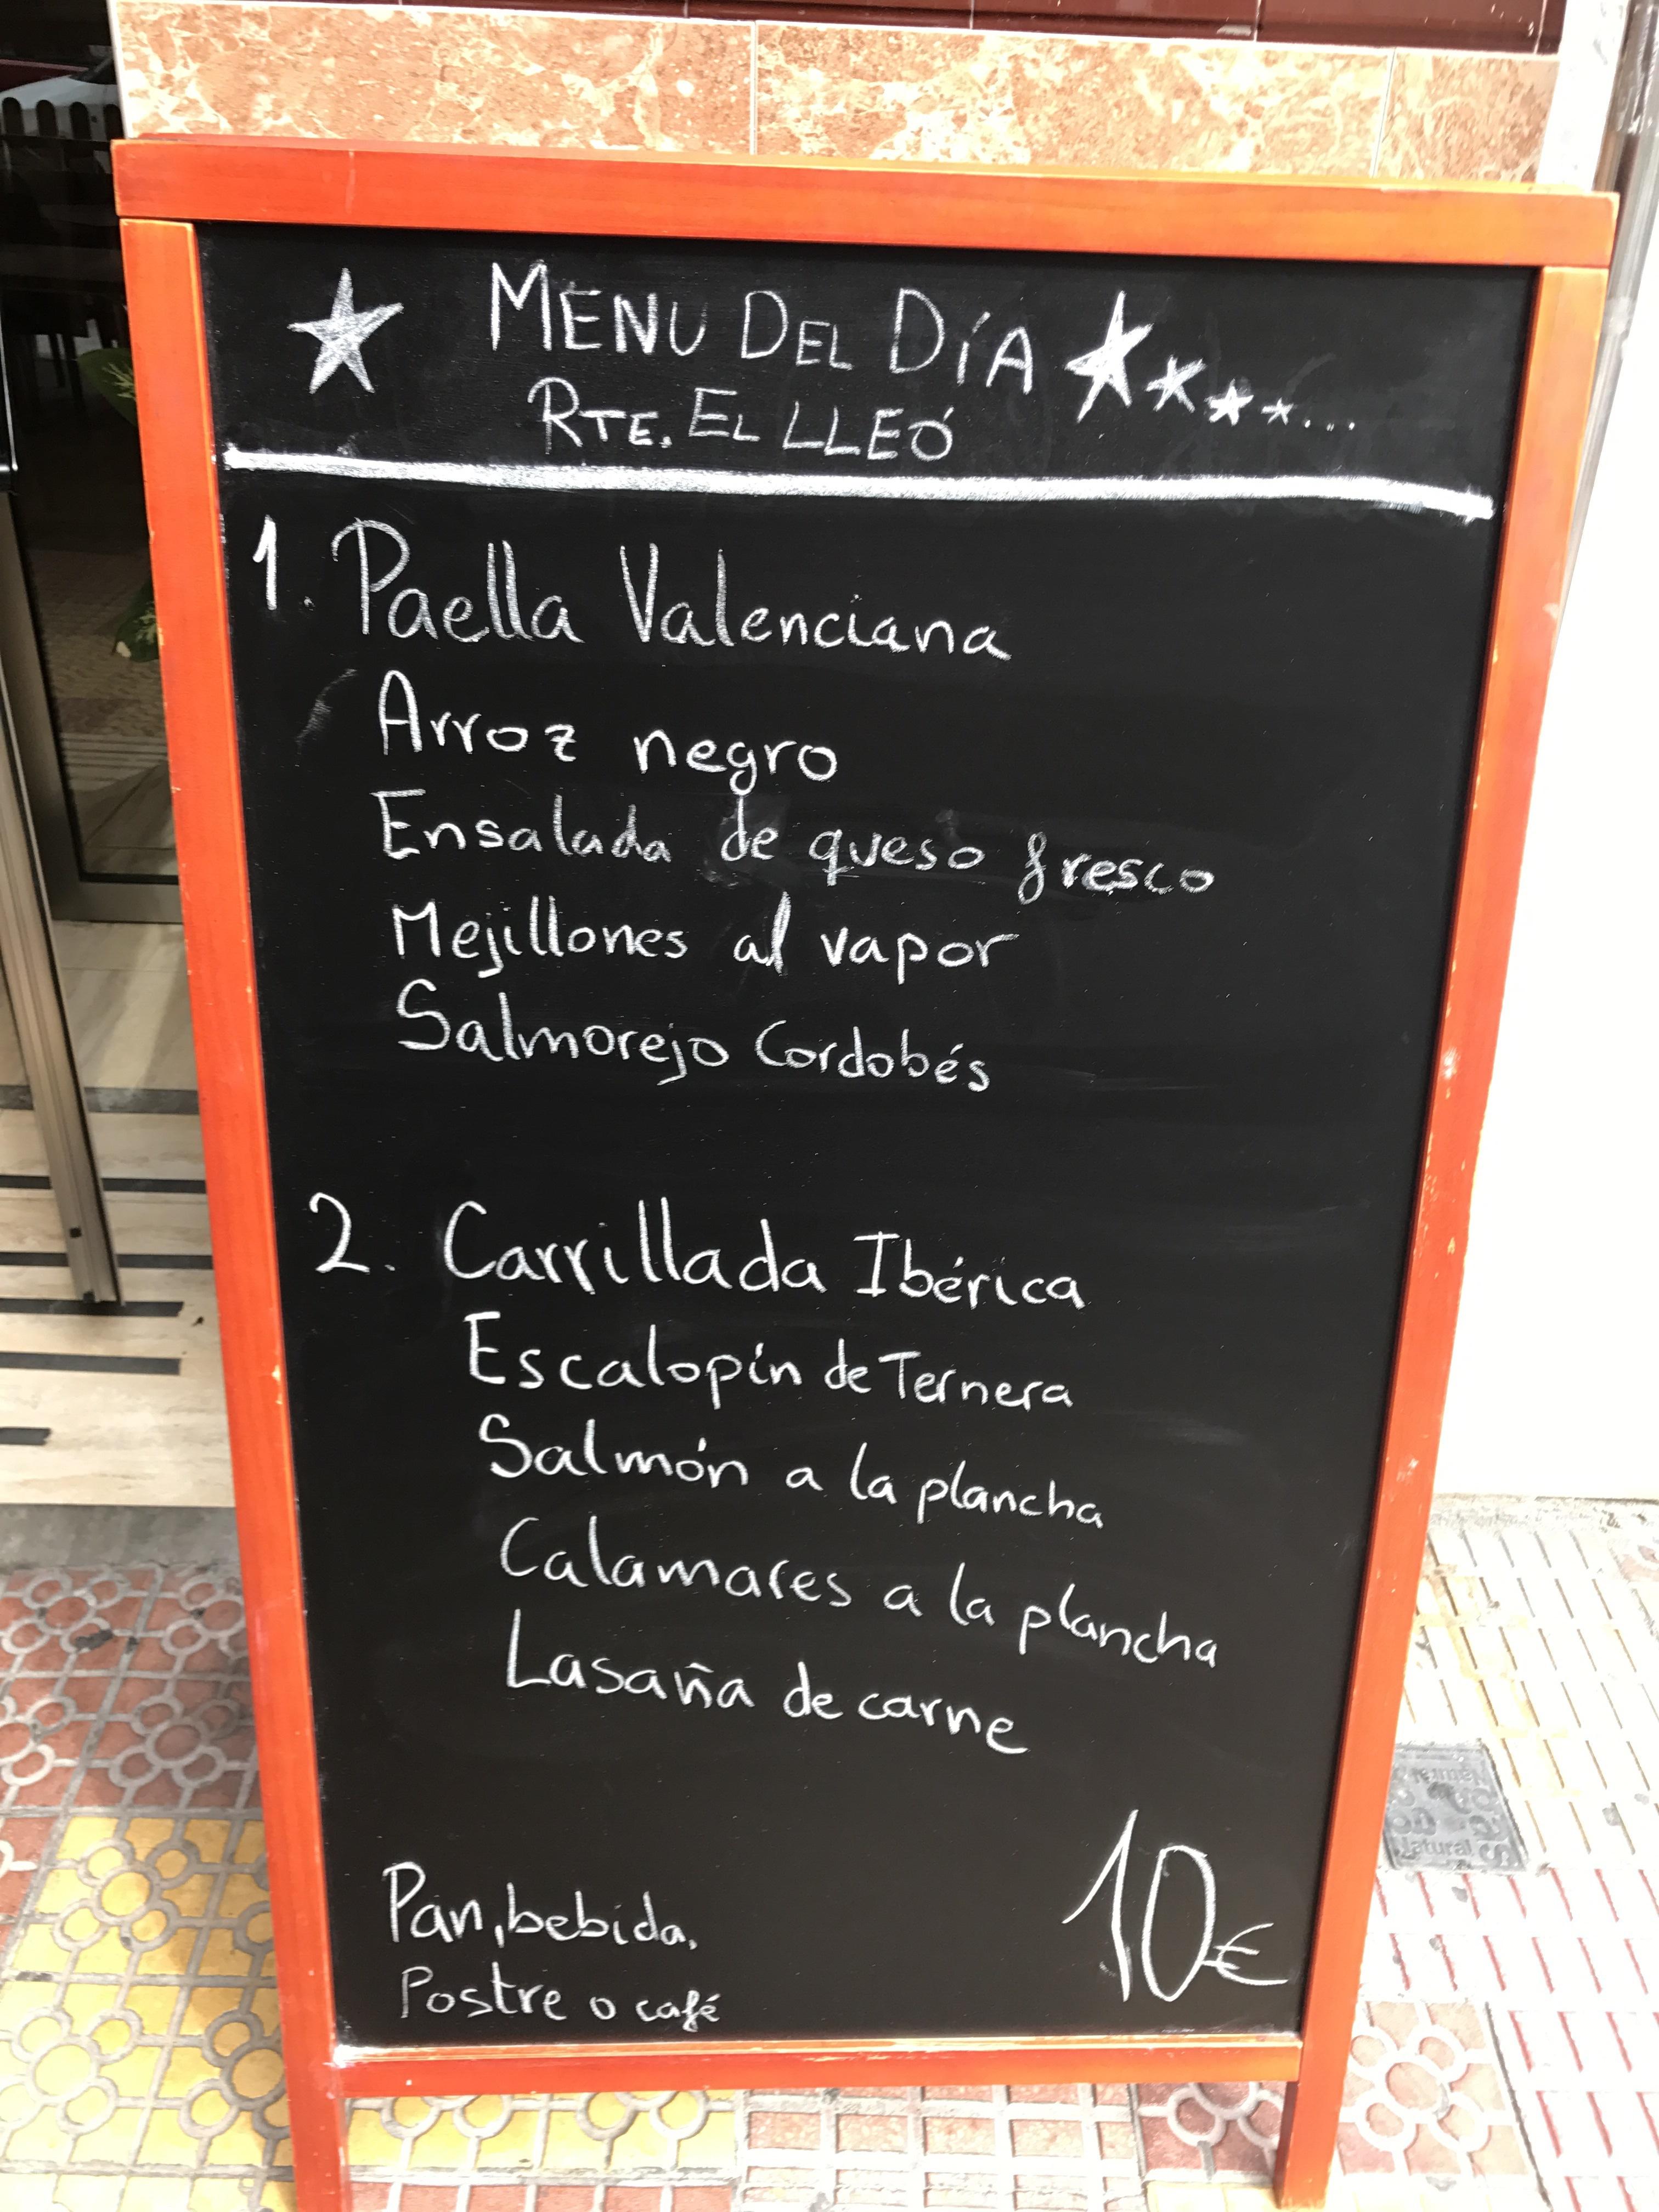 MENU DEL DÍA
RTE. EL LLEÓ
1. Paella Valenciana
Arroz negro
Ensalada de queso fresco
Mejillones al vapor
Salmorejo Cordobés
2. Carrillada Ibérica
Escalopín de Ternera
Salmón a la plancha
Calamares a la plancha
Lasaña de carne
Pan, bebida,
Postre o café
10€
Natural